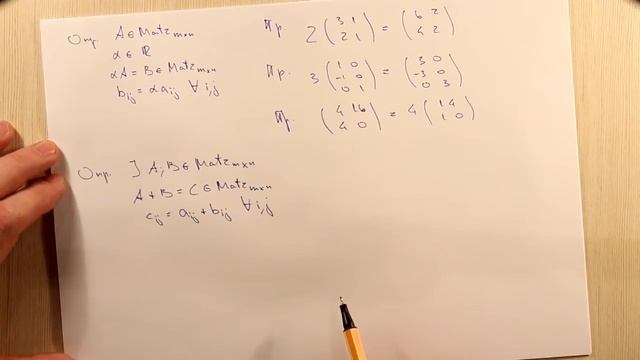 Опр. A ∈ Matr m×n
α ∈ ℝ
αA = B ∈ Matr m×n
b_ij = α a_ij ∀ i,j
Пр. 2 (3 1; 2 1) = (6 2; 4 2)
Пр. 3 (1 0; -1 0; 0 1) = (3 0; -3 0; 0 3)
Пр. (4 16; 4 0) = 4 (1 4; 1 0)
Опр. ] A, B ∈ Matr m×n
A + B = C ∈ Matr m×n
c_ij = a_ij + b_ij ∀ i,j